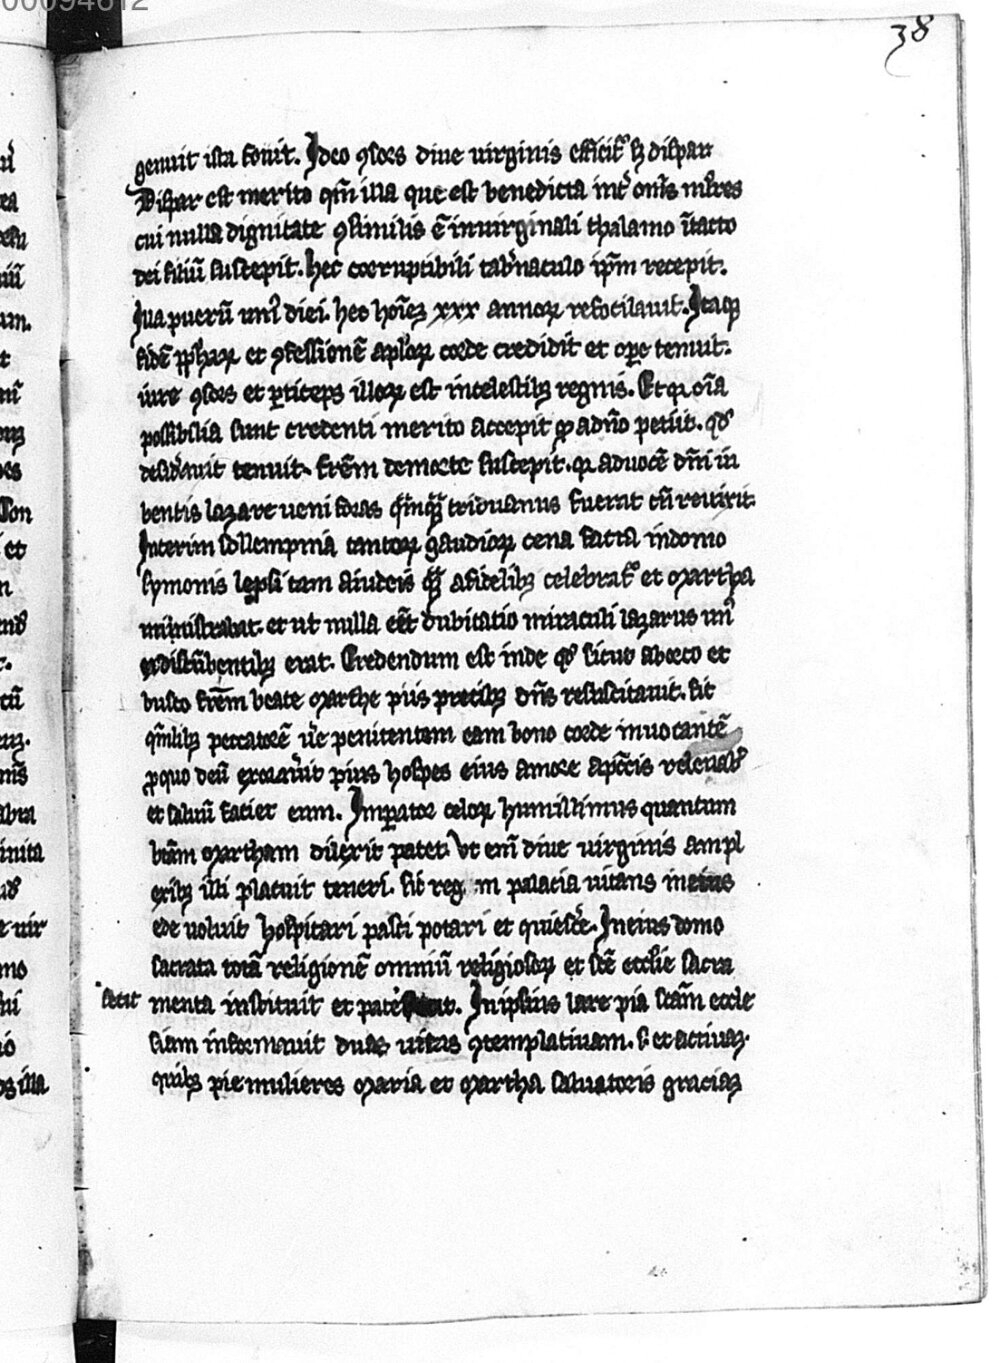 38
genuit ista fouit. Ideo ɔsors diue uirginis efficit᷑ sꝫ dispar.
Dispar est merito qm̄ illa que est benedicta int̓ om̄s ml̓res
cui nulla dignitate ɔsimilis ē in uirginali thalamo ītacto
dei filiū suscepit. hec corruptibili tab̓naculo ip̄m recepit.
Illa puerū uni᷒ diei. hec hoīeꝫ xxx annoꝝ refocilauit. Itaqꝫ
fidē ꝓph̓aꝝ et ɔfessionē apl̓oꝝ corde credidit et oꝑe tenuit.
iure ɔsors et ꝑticeps illoꝝ est in celestibꝫ regnis. Et qꝛ oīa
possibilia sunt credenti merito accepit qđ a dn̄o petiit. qđ
desid̓auit tenuit. frēm de morte suscepit. qꝛ ad uocē dn̄i iu
bentis lazare ueni foras q̄mqͣꝫ triduanus fuerat tn̄ reuixit.
Interim sollempnia tantoꝝ gaudioꝝ cena facta in domo
symonis lep̄si tam a iudeis qͣꝫ a fidelibꝫ celebrat᷑ et martha
ministrabat. et ut nulla eēt dubitatio miraculi lazarus un᷒
ex discūbentibꝫ erat. Credendum est inde qđ sicut ab orco et
busto frēm beate marthe piis precibꝫ dn̄s resuscitauit. sic
qēmlibꝫ peccatorē ue̓ penitentem eam bono corde inuocantē
ꝓ quo deū exorau̓it pius hospes eius amore a pcc̄is releuab̓
et saluū faciet eum. Imꝑator celoꝝ humillimus quantum
btām martham dilexit patet. Vt enī diue uirginis ampl
exibꝫ illi placuit teneri. sic reg in palacia uitans in eius
ede uoluit hospitari pasci potari et quiesce̓. In eius domo
sacrata totā religionē omniū religiosoꝝ et scē eccl̓ie sacra
fecit menta instituit et pate. In ipsius lare pia scām eccle
siam informauit duas uitas ɔtemplatiuam. s. et actiuaꝫ.
quibꝫ pie mulieres maria et martha saluatoris graciaꝫ